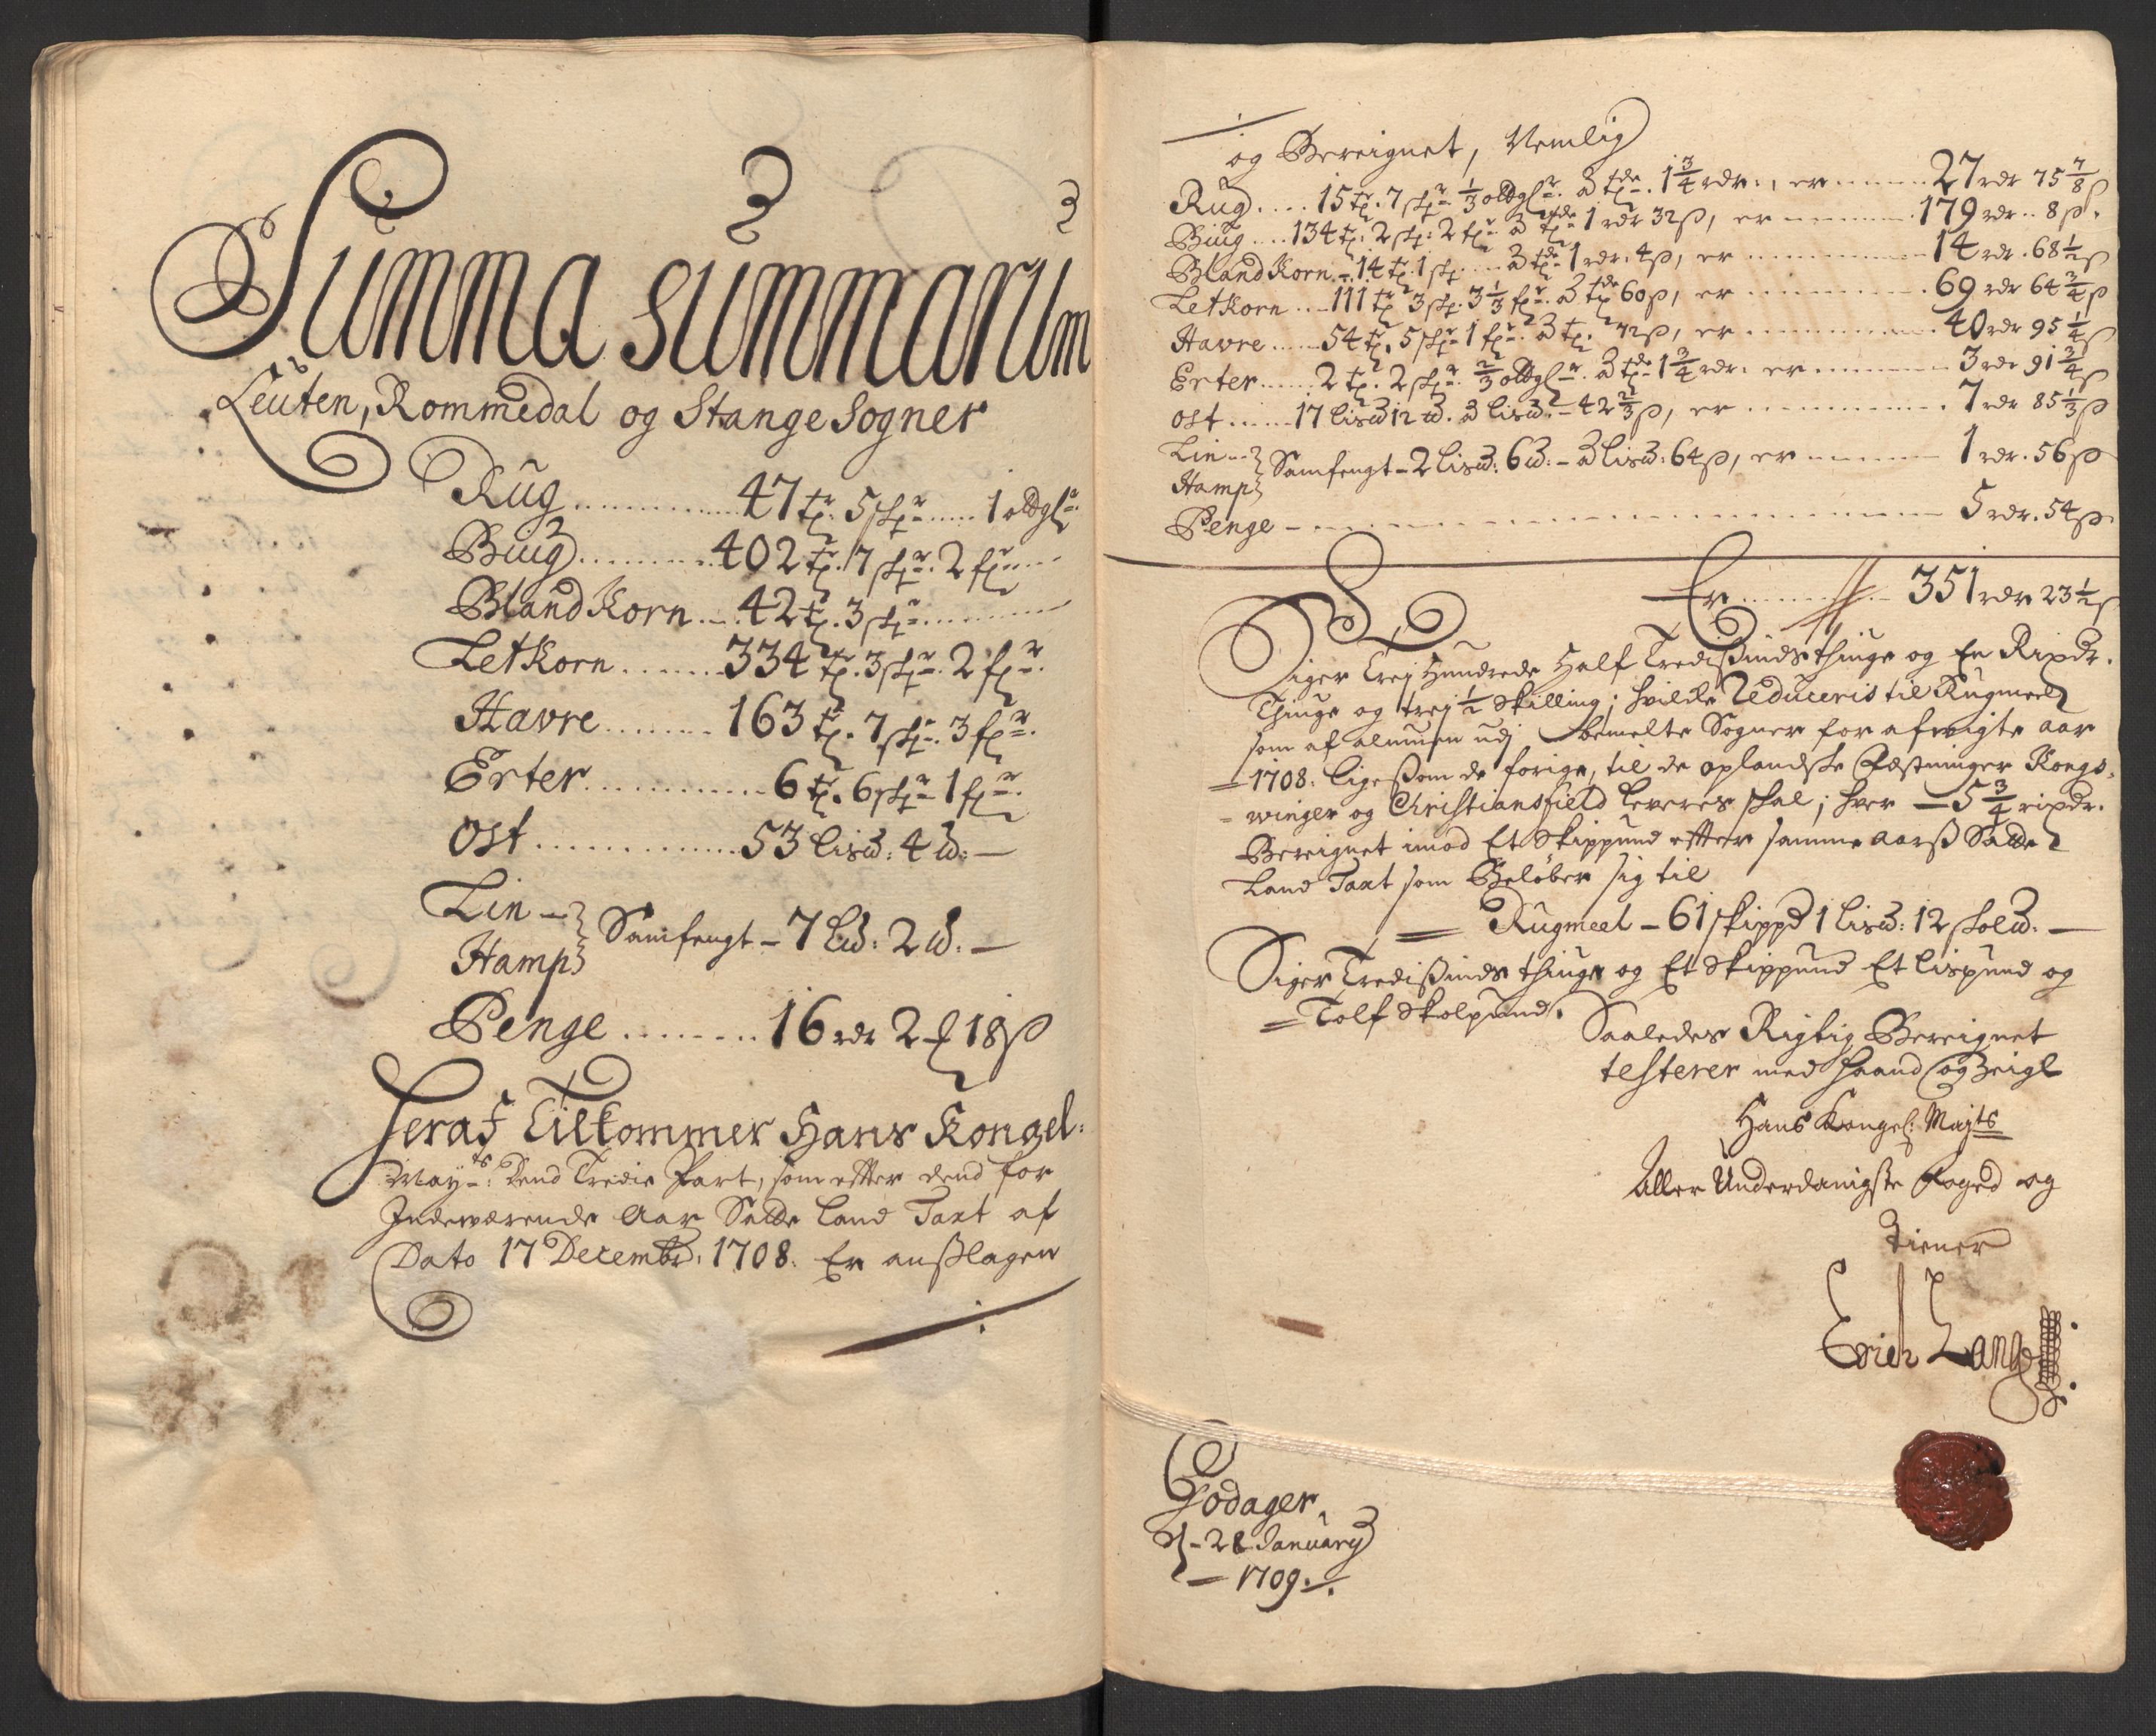 Summa summarum
Leuten, Rommedal og Stange Sogner
Rug ........ 47 tr. 5 skpr ..... 1 oldglr
Biug ........ 402 tr. 7 skpr. 2 fr
Bland Korn .... 42 tr. 3 skpr
Letkorn ...... 334 tr. 3 skpr. 2 fr.
Havre ....... 163 tr. 7 skpr. 3 fr.
Erter ........... 6 tr. 6 skpr 1 fr.
Ost ............ 53 lis℔: 4 ℔: —
Lin —
Hamp } Samfengt – 7 L℔: 2 ℔. —
Penge ........ 16 rdr 2 ꝸ 18 ß
Heraf Tilkommer Hans Kongel:
Mayts: Dend Tredie Part, som efter dend for
Indeværende Aar Satte Land Taxt af
Dato 17 Decembr: 1708. Er anßlagen
og Bereignet, Nemlig
Rug .... 15 tr. 7 skpr 1/3 oldglr. a tde. 1 3/4 rdr., er ...... 27 rdr 75 7/8 ß
Biug .... 134 tr. 2 skp: 2 fr a tde 1 rdr 32 ß, er ...... 179 rdr .. 8 ß.
Bland Korn – 14 tr. 1 skp ..... a tde 1 rdr. 4 ß, er ......... 14 rdr. 68 1/2 ß
Letkorn ... 111 tr 3 skp. 3 1/3 fr. a tde 60 ß, er ......... 69 rdr 64 3/4 ß
Havre ..... 54 tr. 5 skpr 1 fr. a tr. 72 ß, er ......... 40 rdr 95 1/2 ß
Erter ...... 2 tr. 2 skpr. 2/3 oldglr. a tde 1 3/4 rdr. er ...... 3 rdr 91 3/4 ß
Ost ...... 17 lis℔ 12 ℔. a lis℔. – 42 2/3 ß, er ......... 7 rdr 85 1/3 ß
Lin --
Hamp } Samfengt – 2 lis℔: 6 ℔: – a lis℔: 64 ß, er ...... 1 rdr. 56 ß
Penge – — — — — — — 5 rdr. 54 ß
Er ........ 351 rdr 23 1/2 ß
Siger Trej Hundrede Half Tredißinds thiuge og En Rixdr.
Thiuge og trej 1/2 Skilling; hvilke Reduceris til Rugmeel
som af almuen udj bemelte Sogner for afvigte aar
1708. ligeßom de forige, til de oplandske Fæstninger Kongs-
winger og Christiansfield leveres skal; hver – 5 3/4 rixdr.
Bereignet imod Et Skippund effter samme aarß Satte
Land Taxt som Beløber sig til
Rugmeel – 61 skipp℔ 1 lis℔: 12 skol℔. —
Siger Tredißinds thiuge og Et Skippund Et lispund og
Tolf Skolpund.
Saaledes Rigtig Bereignet
testerer med haand og Zeigl
Hans Kongel: Majts
Aller Underdanigste Foged og
Tiener
Erich Lang
Godager,
d - 28 January
1709.